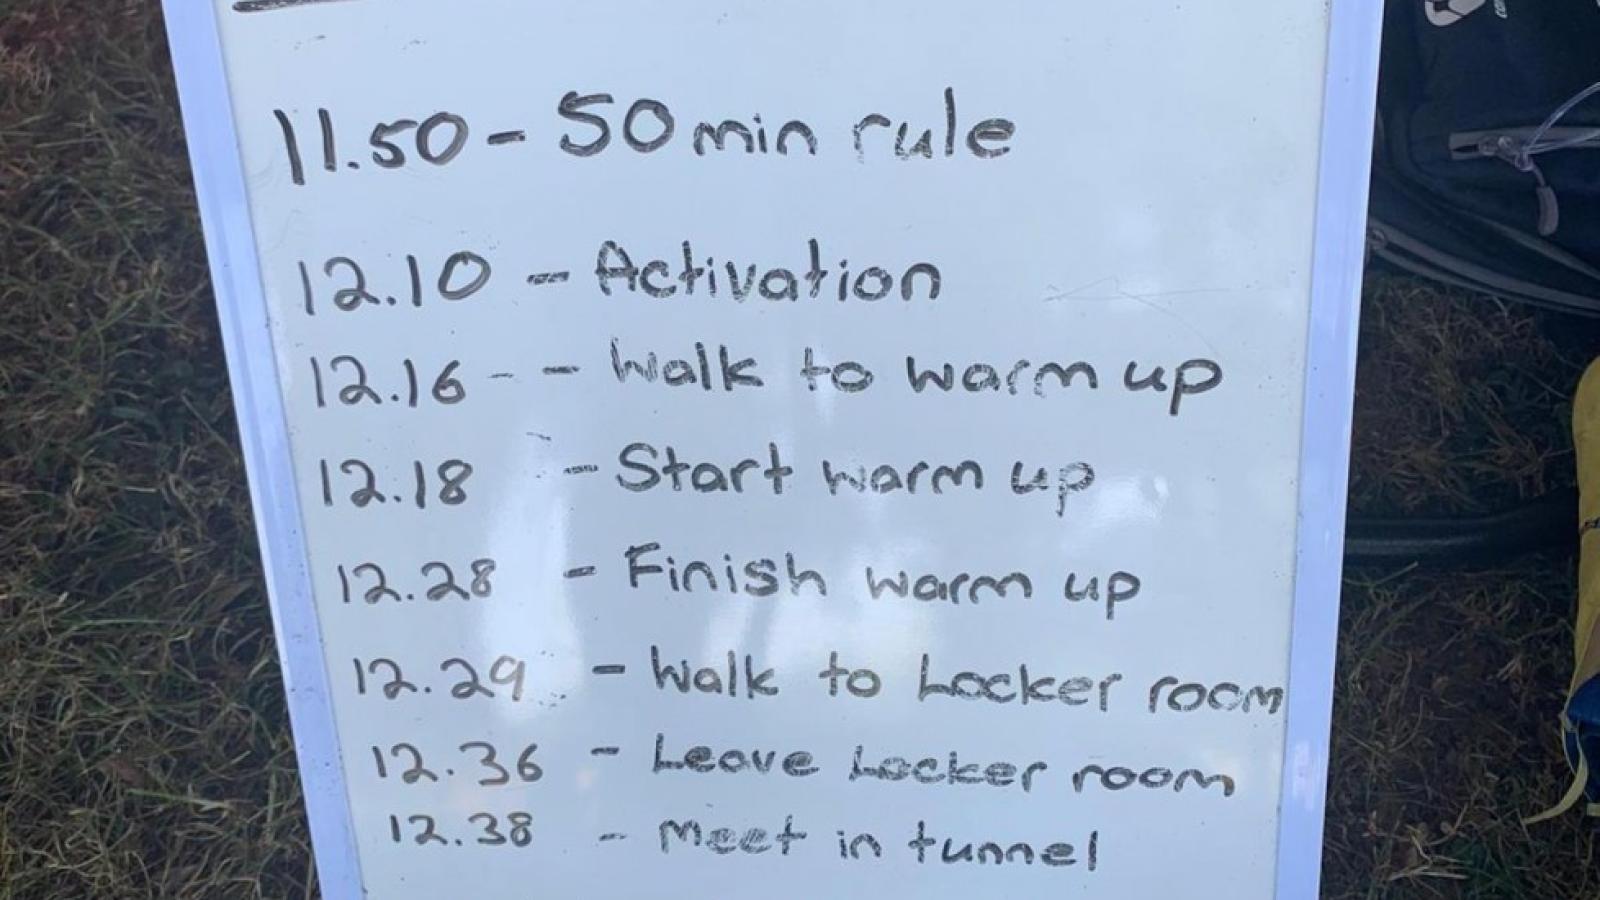 11.50 - 50 min rule
12.10 - Activation
12.16 - - Walk to warm up
12.18 - Start warm up
12.28 - Finish warm up
12.29 - Walk to Locker room
12.36 - Leave Locker room
12.38 - Meet in tunnel